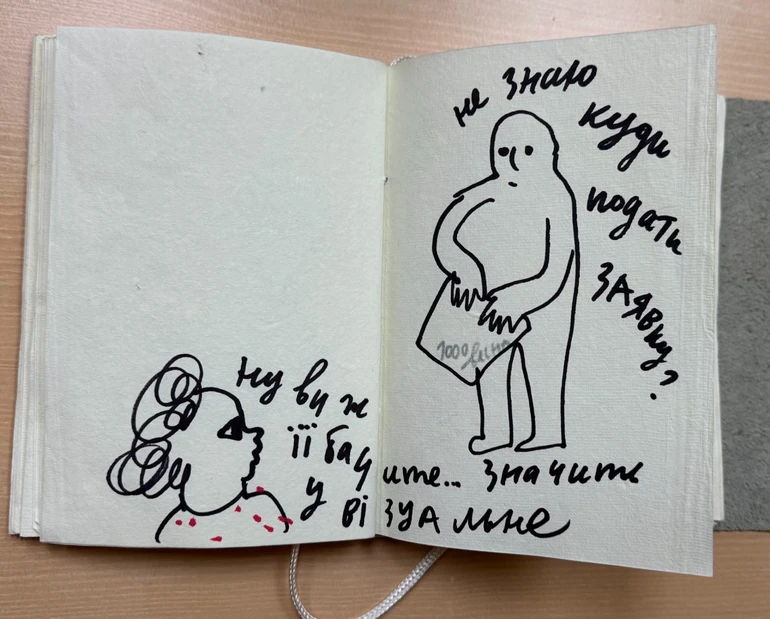 не знаю
куди
подати
заявку?
1000 весно
ну ви ж
її бачите... значить
у візуальне